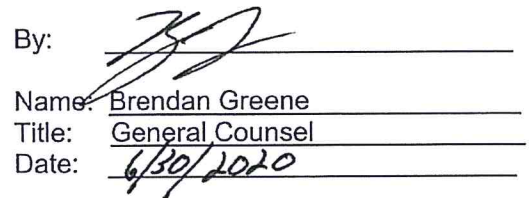 By:
Name: Brendan Greene
Title: General Counsel
Date: 6/30/2020